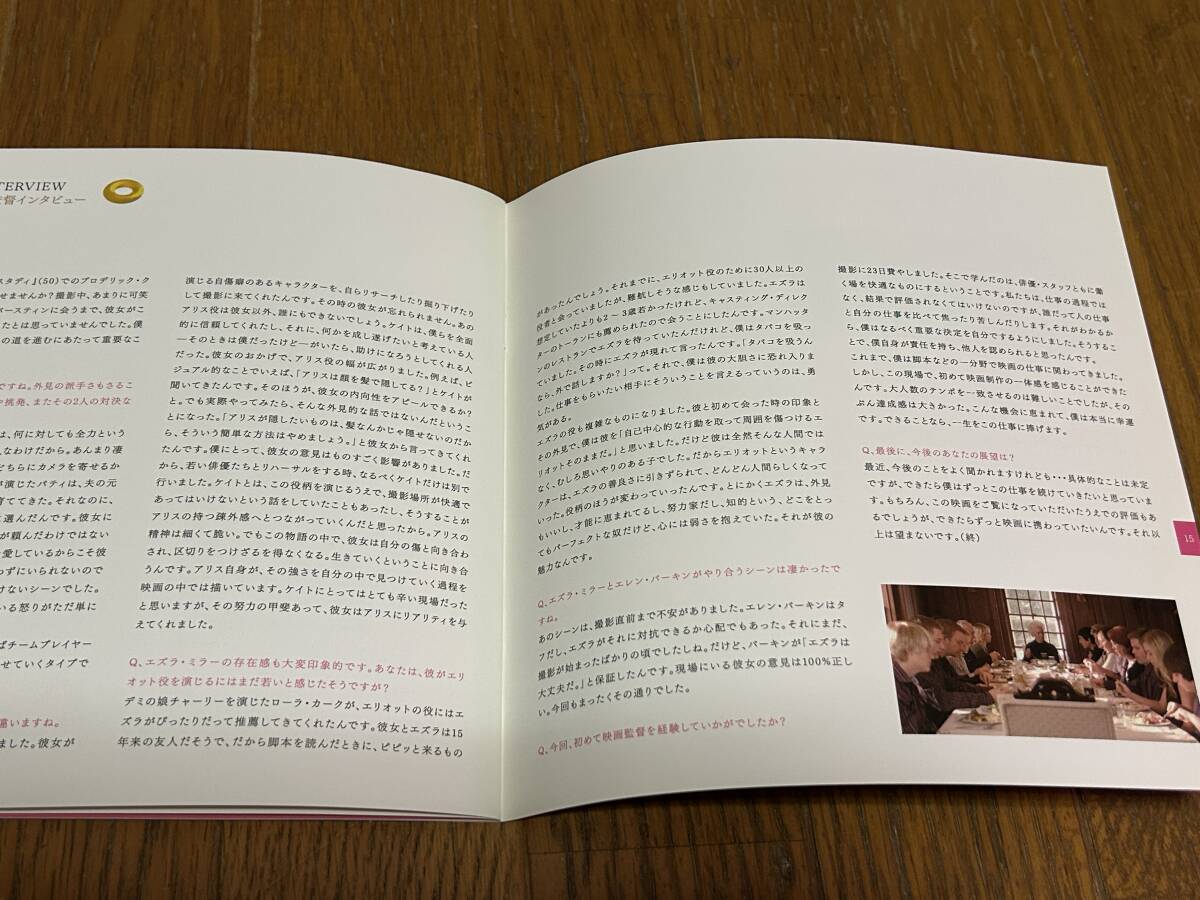 TERVIEW
督インタビュー
スタディ』(50)でのブロデリック・ク
せませんか？撮影中、あまりに可笑
バースティンに会うまで、彼女がこ
たとは思っていませんでした。僕
の道を進むにあたって重要なこ
ですね。外見の派手さもさるこ
や挑発、またその2人の対決な
は、何に対しても全力という
んなわけだから。あんまり凄
どちらにカメラを寄せるか
が演じたパティは、夫の元
育ててきた。それなのに、
選んだんです。彼女に
が頼んだわけではない
を愛しているからこそ彼
わずにいられないので
けないシーンでした。
いる怒りがただ単に
ばチームプレイヤー
せていくタイプで
違いますね。
ました。彼女が
演じる自傷癖のあるキャラクターを、自らリサーチしたり掘り下げたり
して撮影に来てくれたんです。その時の彼女が忘れられません。あの
アリス役は彼女以外、誰にもできないでしょう。ケイトは、僕らを全面
的に信頼してくれたし、それに、何かを成し遂げたいと考えている人
―そのときは僕だったけど―がいたら、助けになろうとしてくれる人
だった。彼女のおかげで、アリス役の幅が広がりました。例えば、ビ
ジュアル的なことでいえば、「アリスは顔を髪で隠してる？」とケイトが
聞いてきたんです。そのほうが、彼女の内向性をアピールできるか？
と。でも実際やってみたら、そんな外見的な話ではないんだというこ
とになった。「アリスが隠したいものは、髪なんかじゃ隠せないのだか
ら、そういう簡単な方法はやめましょう。」と彼女から言ってきてくれ
たんです。僕にとって、彼女の意見はものすごく影響がありました。だ
から、若い俳優たちとリハーサルをする時、なるべくケイトだけは別で
行いました。ケイトとは、この役柄を演じるうえで、撮影場所が快適で
あってはいけないという話をしていたこともあったし、そうすることが
アリスの持つ疎外感へとつながっていくんだと思ったから。アリスの
精神は細くて脆い。でもこの物語の中で、彼女は自分の傷と向き合わ
され、区切りをつけざるを得なくなる。生きていくということに向き合
うんです。アリス自身が、その強さを自分の中で見つけていく過程を
映画の中では描いています。ケイトにとってはとても辛い現場だった
と思いますが、その努力の甲斐あって、彼女はアリスにリアリティを与
えてくれました。
Q、エズラ・ミラーの存在感も大変印象的です。あなたは、彼がエリ
オット役を演じるにはまだ若いと感じたそうですが？
デミの娘チャーリーを演じたローラ・カークが、エリオットの役にはエ
ズラがぴったりだって推薦してきてくれたんです。彼女とエズラは15
年来の友人だそうで、だから脚本を読んだときに、ピピッと来るもの
があったんでしょう。それまでに、エリオット役のために30人以上の
役者と会っていましたが、難航しそうな感じもしていました。エズラは
想定していたよりも2－3歳若かったけれど、キャスティング・ディレク
ターのトーランにも薦められたので会うことにしたんです。マンハッタ
ンのレストランでエズラを待っていたんだけれど、僕はタバコを吸っ
ていました。その時にエズラが現れて言ったんです。「タバコを吸うん
なら、外で話しますか？」って。それで、僕は彼の大胆さに恐れ入りま
した。仕事をもらいたい相手にそういうことを言えるっていうのは、勇
気がある。
エズラの役も複雑なものになりました。彼と初めて会った時の印象と
その外見で、僕は彼を「自己中心的な行動を取って周囲を傷つけるエ
リオットそのままだ。」と思いました。だけど彼は全然そんな人間では
なく、むしろ思いやりのある子でした。だからエリオットというキャラ
クターは、エズラの善良さに引きずられて、どんどん人間らしくなって
いった。役柄のほうが変わっていったんです。とにかくエズラは、外見
もいいし、才能に恵まれてるし、努力家だし、知的という、どこをとっ
てもパーフェクトな奴だけど、心には弱さを抱えていた。それが彼の
魅力なんです。
Q、エズラ・ミラーとエレン・バーキンがやり合うシーンは凄かったで
すね。
あのシーンは、撮影直前まで不安がありました。エレン・バーキンはタ
フだし、エズラがそれに対抗できるか心配でもあった。それにまだ、
撮影が始まったばかりの頃でしたしね。だけど、バーキンが「エズラは
大丈夫だ。」と保証したんです。現場にいる彼女の意見は100％正し
い。今回もまったくその通りでした。
Q、今回、初めて映画監督を経験していかがでしたか？
撮影に23日費やしました。そこで学んだのは、俳優・スタッフともに働
く場を快適なものにするということです。私たちは、仕事の過程では
なく、結果で評価されなくてはいけないのですが、誰だって人の仕事
と自分の仕事を比べて焦ったり苦しんだりします。それがわかるか
ら、僕はなるべく重要な決定を自分でするようにしました。そうするこ
とで、僕自身が責任を持ち、他人を認められると思ったんです。
これまで、僕は脚本などの一分野で映画の仕事に関わってきました。
しかし、この現場で、初めて映画制作の一体感を感じることができた
んです。大人数のテンポを一致させるのは難しいことでしたが、その
ぶん達成感は大きかった。こんな機会に恵まれて、僕は本当に幸運
です。できることなら、一生をこの仕事に捧げます。
Q、最後に、今後のあなたの展望は？
最近、今後のことをよく聞かれますけれども・・・具体的なことは未定
ですが、できたら僕はずっとこの仕事を続けていきたいと思っていま
す。もちろん、この映画をご覧になっていただいたうえでの評価もあ
るでしょうが、できたらずっと映画に携わっていたいんです。それ以
上は望まないです。（終）
15